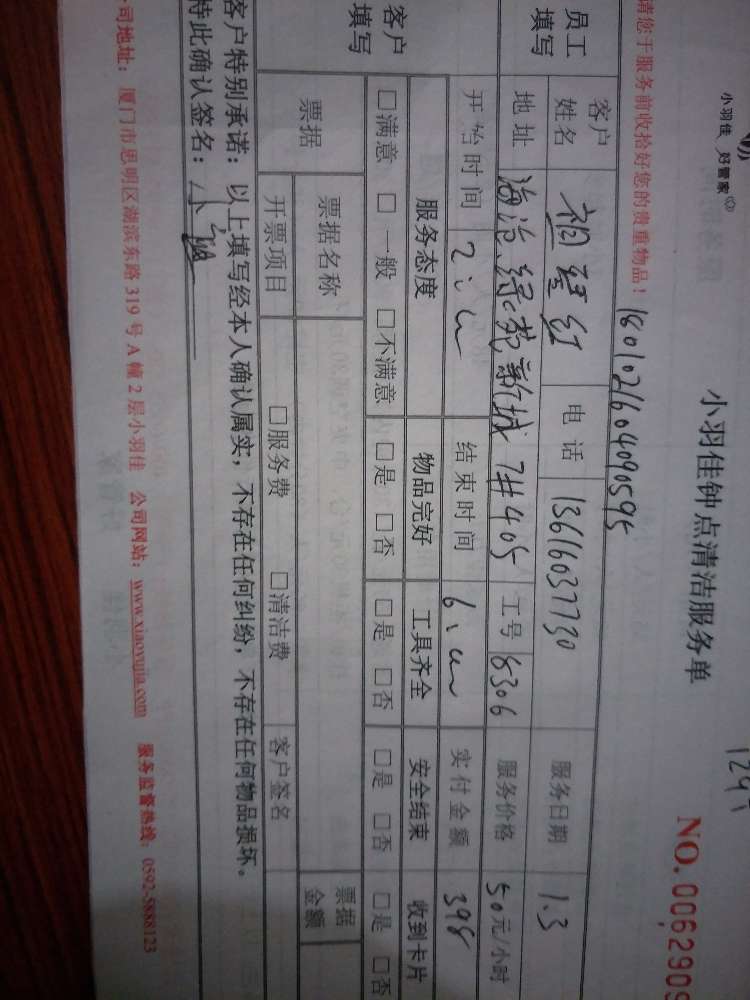 小羽佳 好管家
小羽佳钟点清洁服务单
NO.0062909
请您于服务前收拾好您的贵重物品！
1801021604090595
员工填写
客户姓名 电话 13616037730 服务日期 1.3
地址 海沧绿苑新城 7#405 工号 8306 服务价格 50元/小时
开始时间 2:00 结束时间 6:00 实付金额 398
客户填写
服务态度 物品完好 工具齐全 安全结束 收到卡片
□满意 □一般 □不满意 □是 □否 □是 □否 □是 □否 □是 □否
票据 票据名称 票据金额
开票项目 □服务费 □清洁费 客户签名
客户特别承诺：以上填写经本人确认属实，不存在任何纠纷，不存在任何物品损坏。
特此确认签名：
公司地址：厦门市思明区湖滨东路319号A幢2层小羽佳 公司网站：www.xiaoyujia.com 服务监督热线：0592-5888123